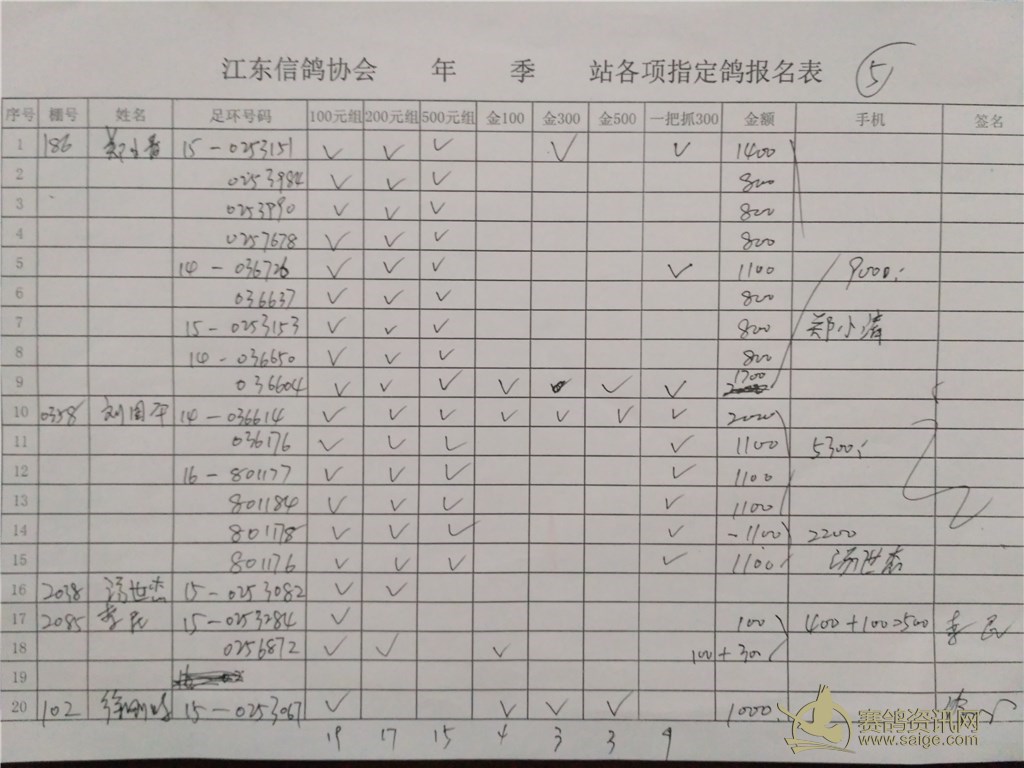 江东信鸽协会 年 季 站各项指定鸽报名表 5
序号 棚号 姓名 足环号码 100元组 200元组 500元组 金100 金300 金500 一把抓300 金额 手机 签名
1 186 15-0253151 ✓ ✓ ✓ ✓ ✓ 1400
2 0253984 ✓ ✓ ✓ 800
3 0253990 ✓ ✓ ✓ 800
4 0257678 ✓ ✓ ✓ 800
5 14-036726 ✓ ✓ ✓ ✓ 1100 9000
6 036637 ✓ ✓ ✓ 800
7 15-0253153 ✓ ✓ ✓ 800 郑小清
8 14-036650 ✓ ✓ ✓ 800
9 036604 ✓ ✓ ✓ ✓ ✓ ✓ 1700
10 0358 刘国平 14-036614 ✓ ✓ ✓ ✓ ✓ ✓ ✓ 2000
11 036176 ✓ ✓ ✓ ✓ 1100 5300
12 16-801177 ✓ ✓ ✓ ✓ 1100
13 801184 ✓ ✓ ✓ ✓ 1100
14 801178 ✓ ✓ ✓ ✓ -1100 2200
15 801176 ✓ ✓ ✓ ✓ 1100 汤世杰
16 2038 汤世杰 15-0253082 ✓ ✓
17 2085 李民 15-0253284 ✓ 100 400+100=500 李民
18 0256872 ✓ ✓ ✓ 100+300
19
20 102 15-0253067 ✓ ✓ ✓ ✓ 1000
19 17 15 4 3 3 9
赛鸽资讯网
www.saige.com